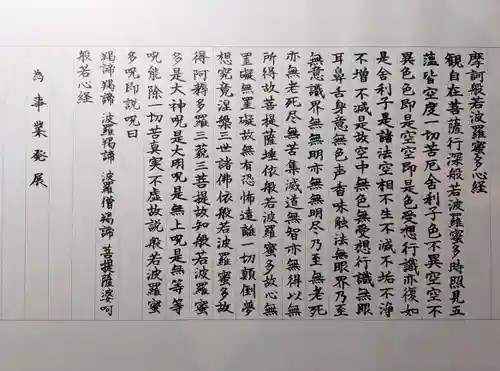 摩訶般若波羅蜜多心経
観自在菩薩行深般若波羅蜜多時照見五
薀皆空度一切苦厄舎利子色不異空空不
異色色即是空空即是色受想行識亦復如
是舎利子是諸法空相不生不滅不垢不浄
不増不減是故空中無色無受想行識無眼
耳鼻舌身意無色声香味触法無眼界乃至
無意識界無無明亦無無明尽乃至無老死
亦無老死尽無苦集滅道無智亦無得以無
所得故菩提薩埵依般若波羅蜜多故心無
罣礙無罣礙故無有恐怖遠離一切顛倒夢
想究竟涅槃三世諸佛依般若波羅蜜多故
得阿耨多羅三藐三菩提故知般若波羅蜜
多是大神呪是大明呪是無上呪是無等等
呪能除一切苦真実不虚故説般若波羅蜜
多呪即説呪曰
羯諦羯諦 波羅羯諦 波羅僧羯諦 菩提薩婆呵
般若心経
為 事業発展